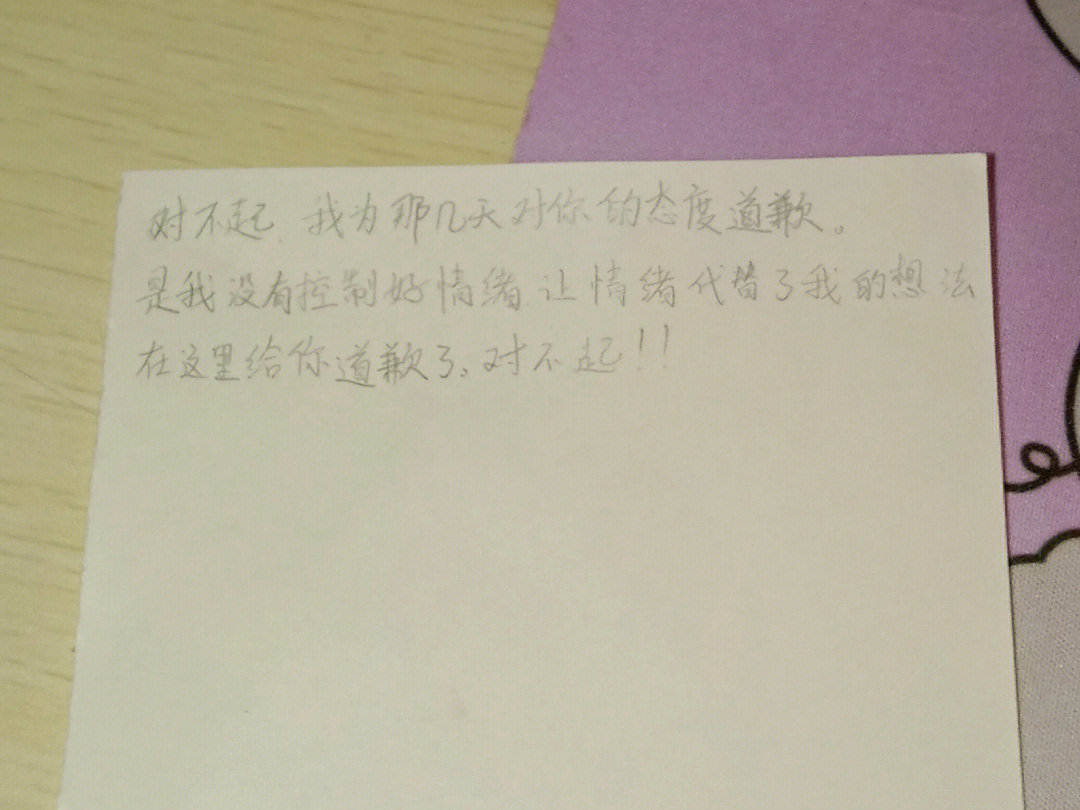 对不起，我为那几天对你的态度道歉。
是我没有控制好情绪，让情绪代替了我的想法
在这里给你道歉了。对不起！！